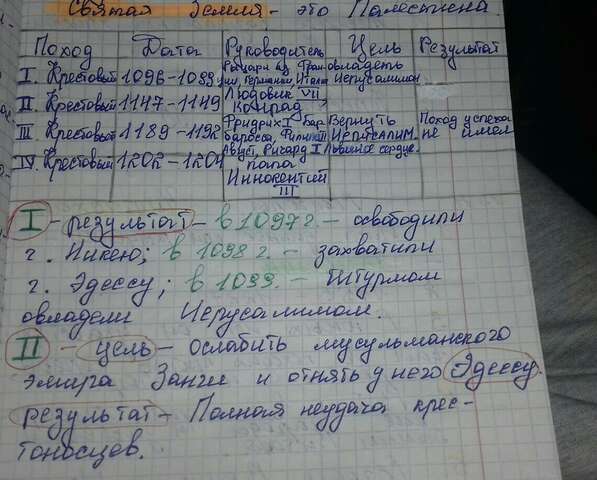 Святая Земля - это Палестина.
Поход Дата Руководитель Цель Результат
I. Крестовый 1096-1099 Рыцари из Фран- овладеть
ции, Германии, Итали Иерусалимом
II. Крестовый 1147-1149 Людовик VII
Конрад
III. Крестовый 1189-1192 Фридрих I Бар- Вернуть Поход успеха
баросса, Филипп II Иерусалим. не имел
Август, Ричард I Львиное сердце.
IV. Крестовый 1202-1204 папа
Иннокентий
III
I - результат - в 1097 г. - освободили
г. Никею; в 1098 г. - захватили
г. Эдессу; в 1099. - Штурмом
овладели Иерусалимом.
II - цель - ослабить мусульманского
эмира Занги и отнять у него Эдессу.
результат - Полная неудача крес-
тоносцев.